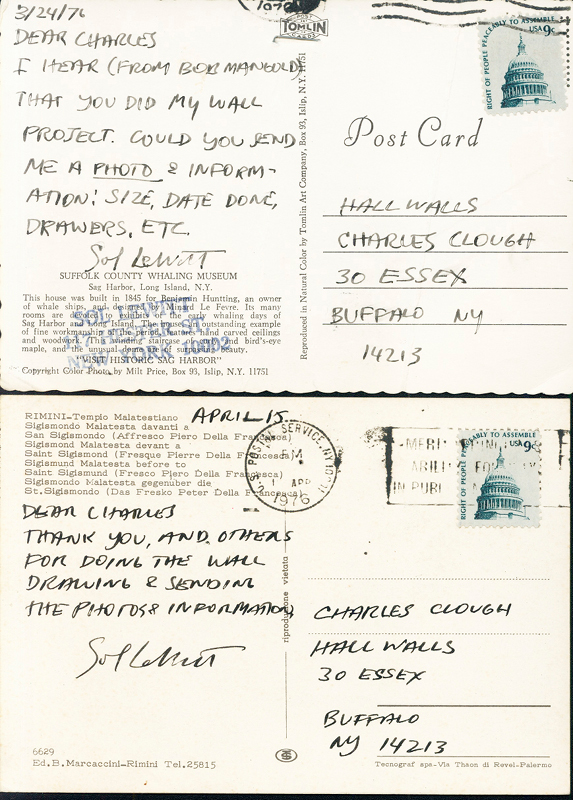 3/24/76
DEAR CHARLES
I HEAR (FROM BOB MANGOLD)
THAT YOU DID MY WALL
PROJECT. COULD YOU SEND
ME A PHOTO & INFORM-
ATION: SIZE, DATE DONE,
DRAWERS, ETC.
Sol LeWitt
SUFFOLK COUNTY WHALING MUSEUM
Sag Harbor, Long Island, N.Y.
This house was built in 1845 for Benjamin Huntting, an owner
of whale ships, and designed by Minard Le Fevre. Its many
rooms are devoted to exhibits of the early whaling days of
Sag Harbor and Long Island. The house is an outstanding example
of fine workmanship of the period, features hand carved ceilings
and woodwork. This winding staircase is curly and bird's-eye
maple, and the unusual design are of surpassing beauty.
"VISIT HISTORIC SAG HARBOR"
Copyright Color Photo by Milt Price, Box 93, Islip, N.Y. 11751
SOL LEWITT
117 HESTER ST.
NEW YORK 10002
1976
TOMLIN
Reproduced in Natural Color by Tomlin Art Company, Box 93, Islip, N.Y. 11751
Post Card
RIGHT OF PEOPLE PEACEABLY TO ASSEMBLE
USA 9c
HALL WALLS
CHARLES CLOUGH
30 ESSEX
BUFFALO NY
14213
RIMINI-Tempio Malatestiano
APRIL 15
Sigismondo Malatesta davanti a
San Sigismondo (Affresco Piero Della Francesca)
Sigismond Malatesta devant a
Saint Sigismond (Fresque Pierre Della Francesca)
Sigismund Malatesta before to
Saint Sigismund (Fresco Piero Della Francesca)
Sigismondo Malatesta gegenüber die
St. Sigismondo (Das Fresko Peter Della Francesca)
DEAR CHARLES
THANK YOU, AND OTHERS
FOR DOING THE WALL
DRAWING & SENDING
THE PHOTOS & INFORMATION
Sol LeWitt
6629
Ed. B. Marcaccini-Rimini Tel. 25815
riproduzione vietata
U.S. POSTAL SERVICE, NY
PM
APR
1976
RIGHT OF PEOPLE PEACEABLY TO ASSEMBLE
USA 9c
CHARLES CLOUGH
HALL WALLS
30 ESSEX
BUFFALO
NY 14213
Tecnograf spa-Via Thaon di Revel-Palermo